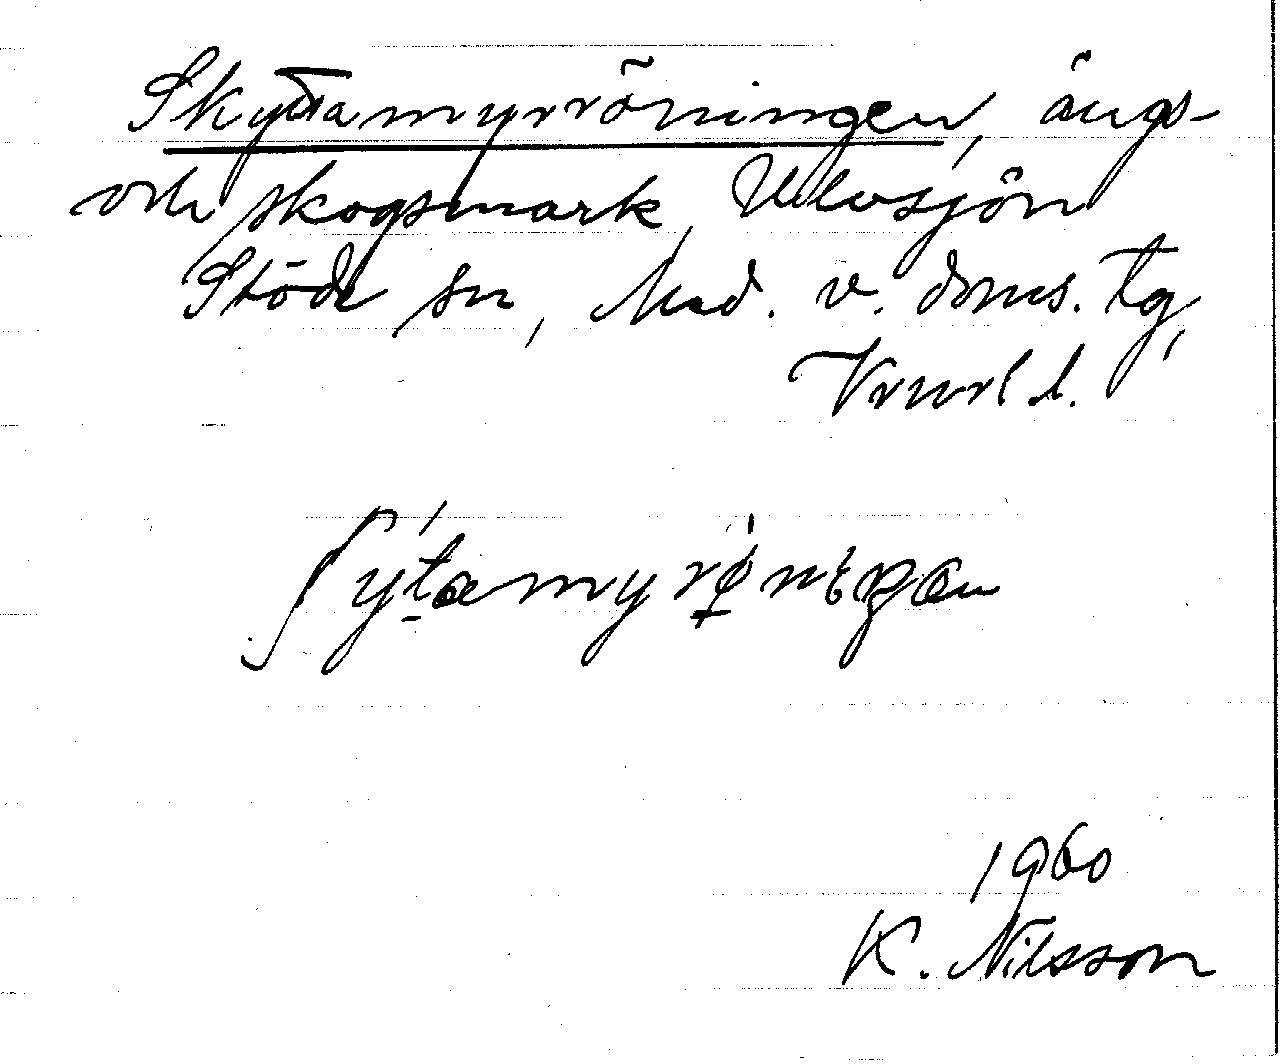 Skyttamyrröningen, ängs-
och skogsmark, Ulvsjön
Stöde sn, Med. v. doms. tg,
Vrurl l.
1960
K. Nilsson